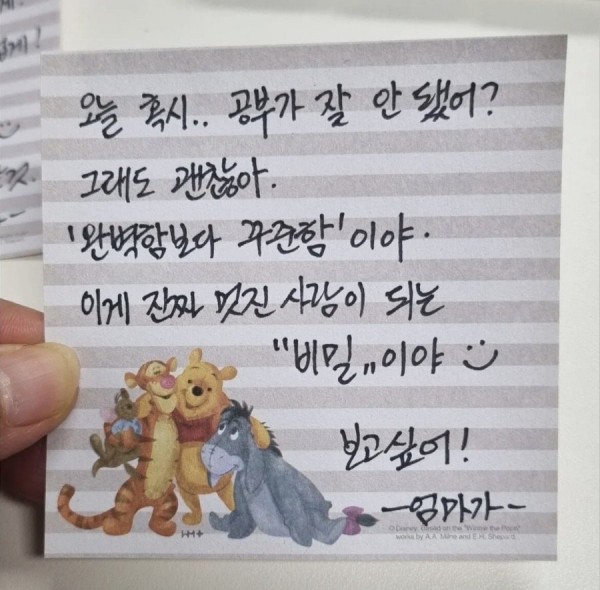 오늘 혹시.. 공부가 잘 안 됐어?
그래도 괜찮아.
'완벽함보다 꾸준함'이야.
이게 진짜 멋진 사람이 되는
"비밀"이야
보고싶어!
-엄마가-
© Disney. Based on the "Winnie the Pooh"
works by A.A. Milne and E.H. Shepard.